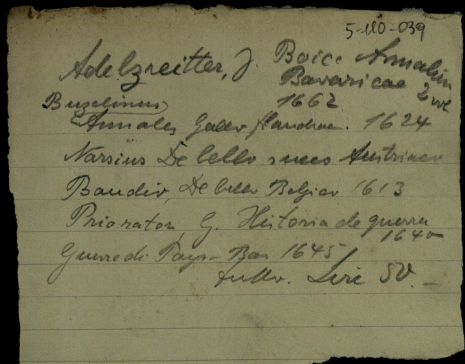 5-110-039
Adelzreitter, J. Boice Annalium
Bavaricae 2 vol
Buzelinus 1662
Annales Gallo flandriae. 1624
Narsius De bello sueco Austriaco
Baudio, De bello Belgico 1613
Priorator, G. Historia de guerra
1640
Guerre di Pays-Bas 1645
Live SV. -